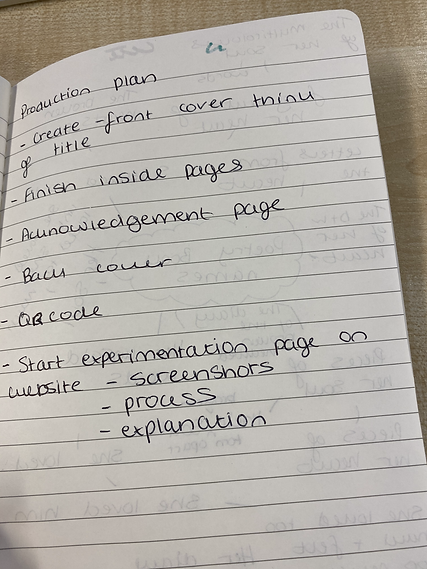 Production plan
- Create front cover think
of title
- Finish inside pages
- Acknowledgement page
- Back cover
- QR code
- Start experimentation page on
website - screenshots
- process
- explanation